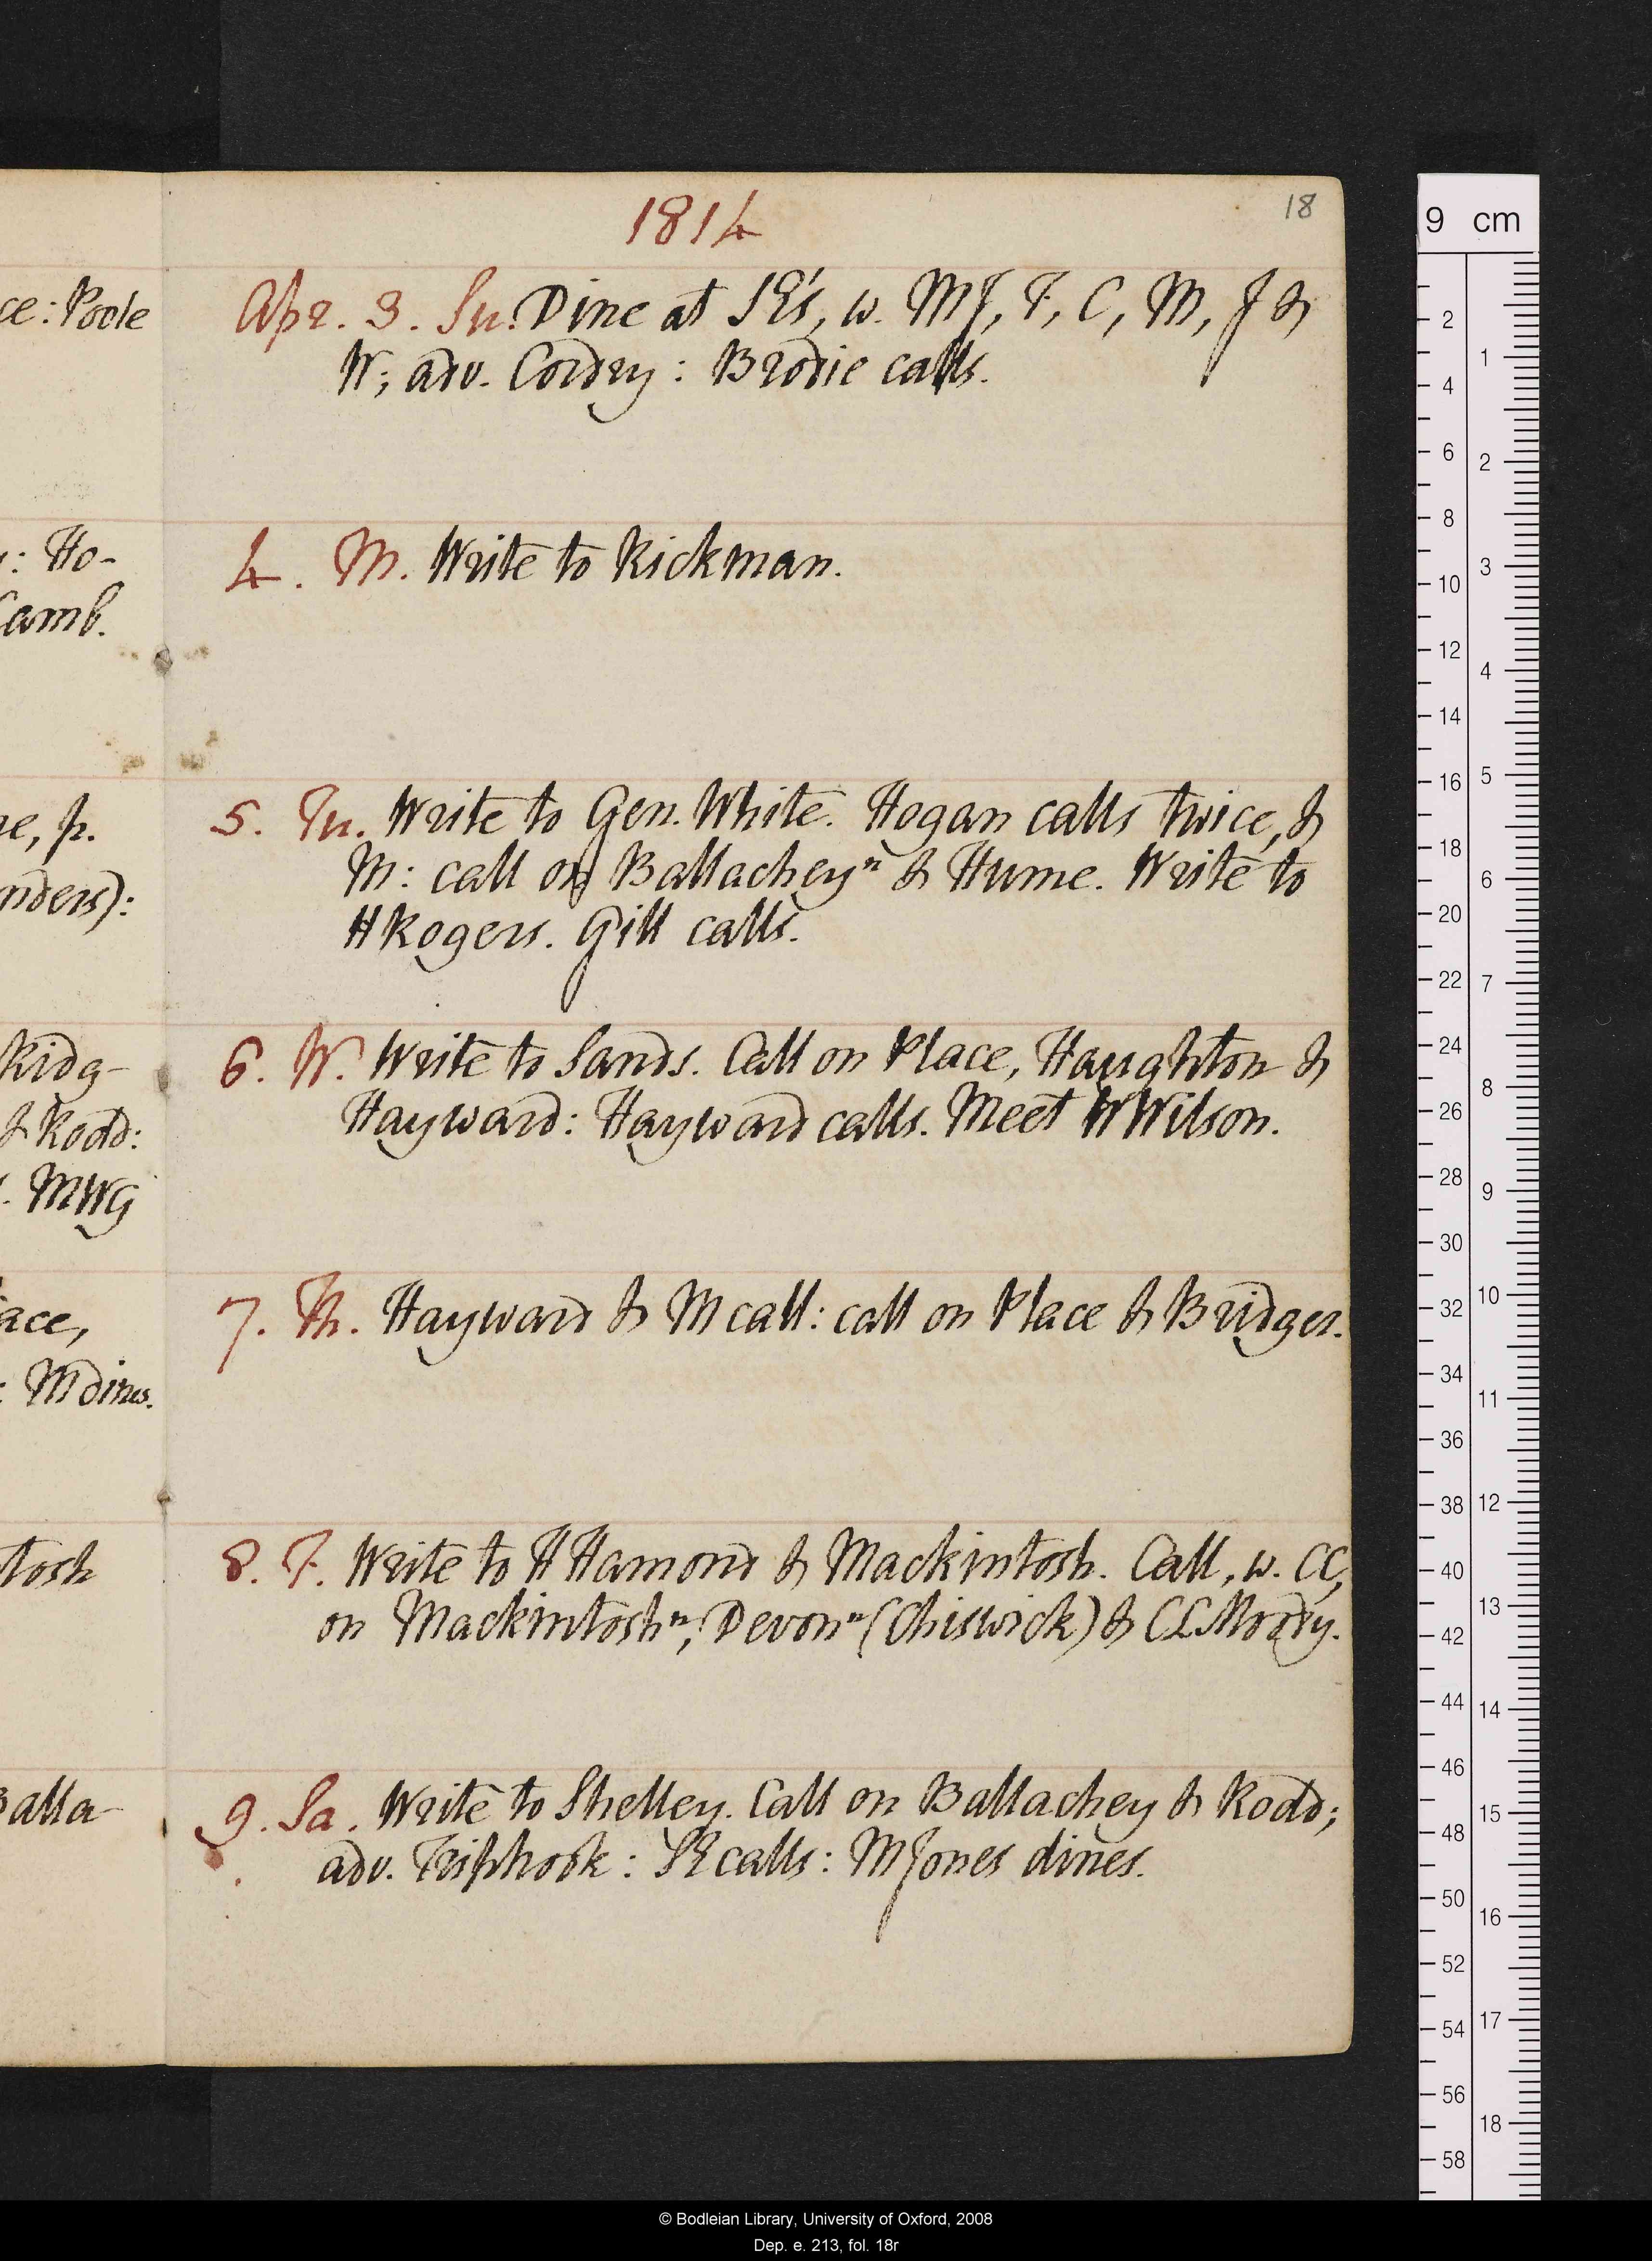 ce: Poole
: Ho-
Lamb.
ne, p.
nders):
Ridg-
& Rodd:
. MWG
lace,
: M dines.
tosh
Balla-
1814
18
Apr. 3. Su. Dine at SE's, w. MJ, F, C, M, J &
W; adv. Cordry: Brodie calls.
4. M. Write to Rickman.
5. Tu. Write to Gen. White. Hogan calls twice, &
M: call on Ballachey n & Hume. Write to
H Rogers. Gill calls.
6. W. Write to Sands. Call on Place, Haughton &
Hayward: Hayward calls. Meet W Wilson.
7. Th. Hayward & M call: call on Place & Bridger.
8. F. Write to H Hamond & Mackintosh. Call, w. CC,
on Mackintosh n, Devon n (Chiswick) & CL Moody.
9. Sa. Write to Shelley. Call on Ballachey & Rodd;
adv. Triphook: SE calls: M Jones dines.
9 cm
2
4
6
8
10
12
14
16
18
20
22
24
26
28
30
32
34
36
38
40
42
44
46
48
50
52
54
56
58
1
2
3
4
5
6
7
8
9
10
11
12
13
14
15
16
17
18
© Bodleian Library, University of Oxford, 2008
Dep. e. 213, fol. 18r